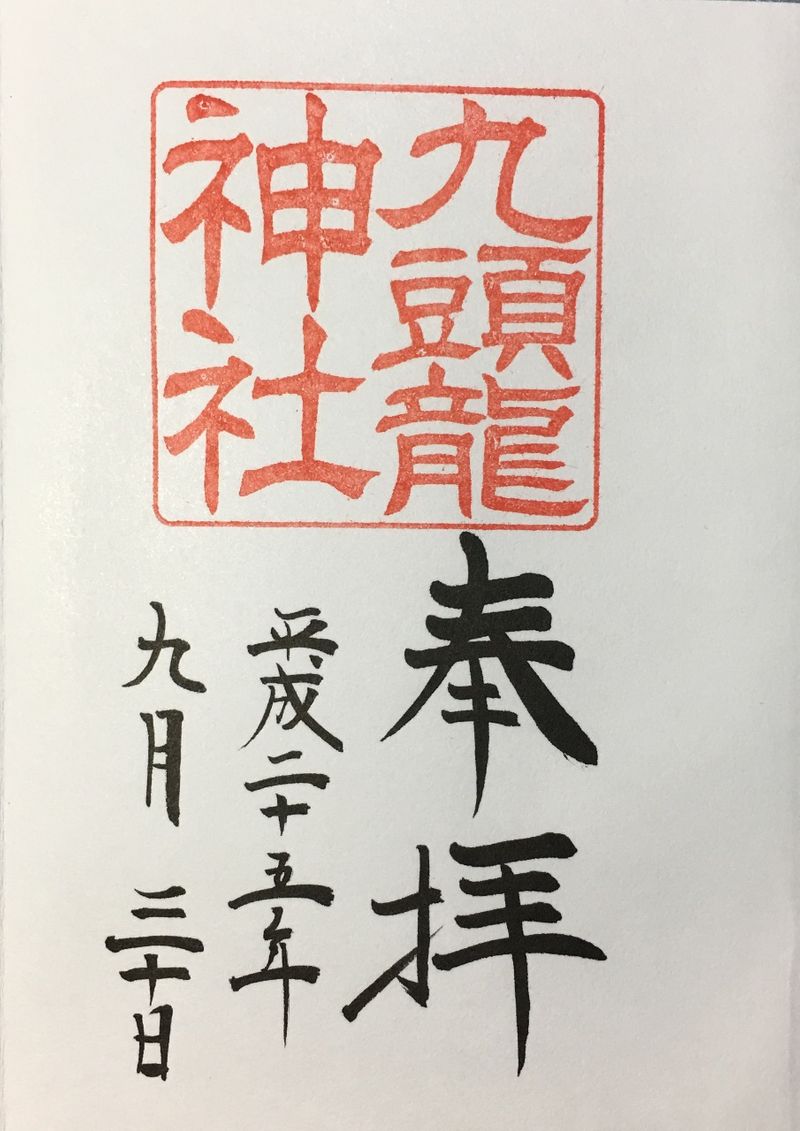 九頭龍
神社
奉拝
平成二十五年
九月三十日